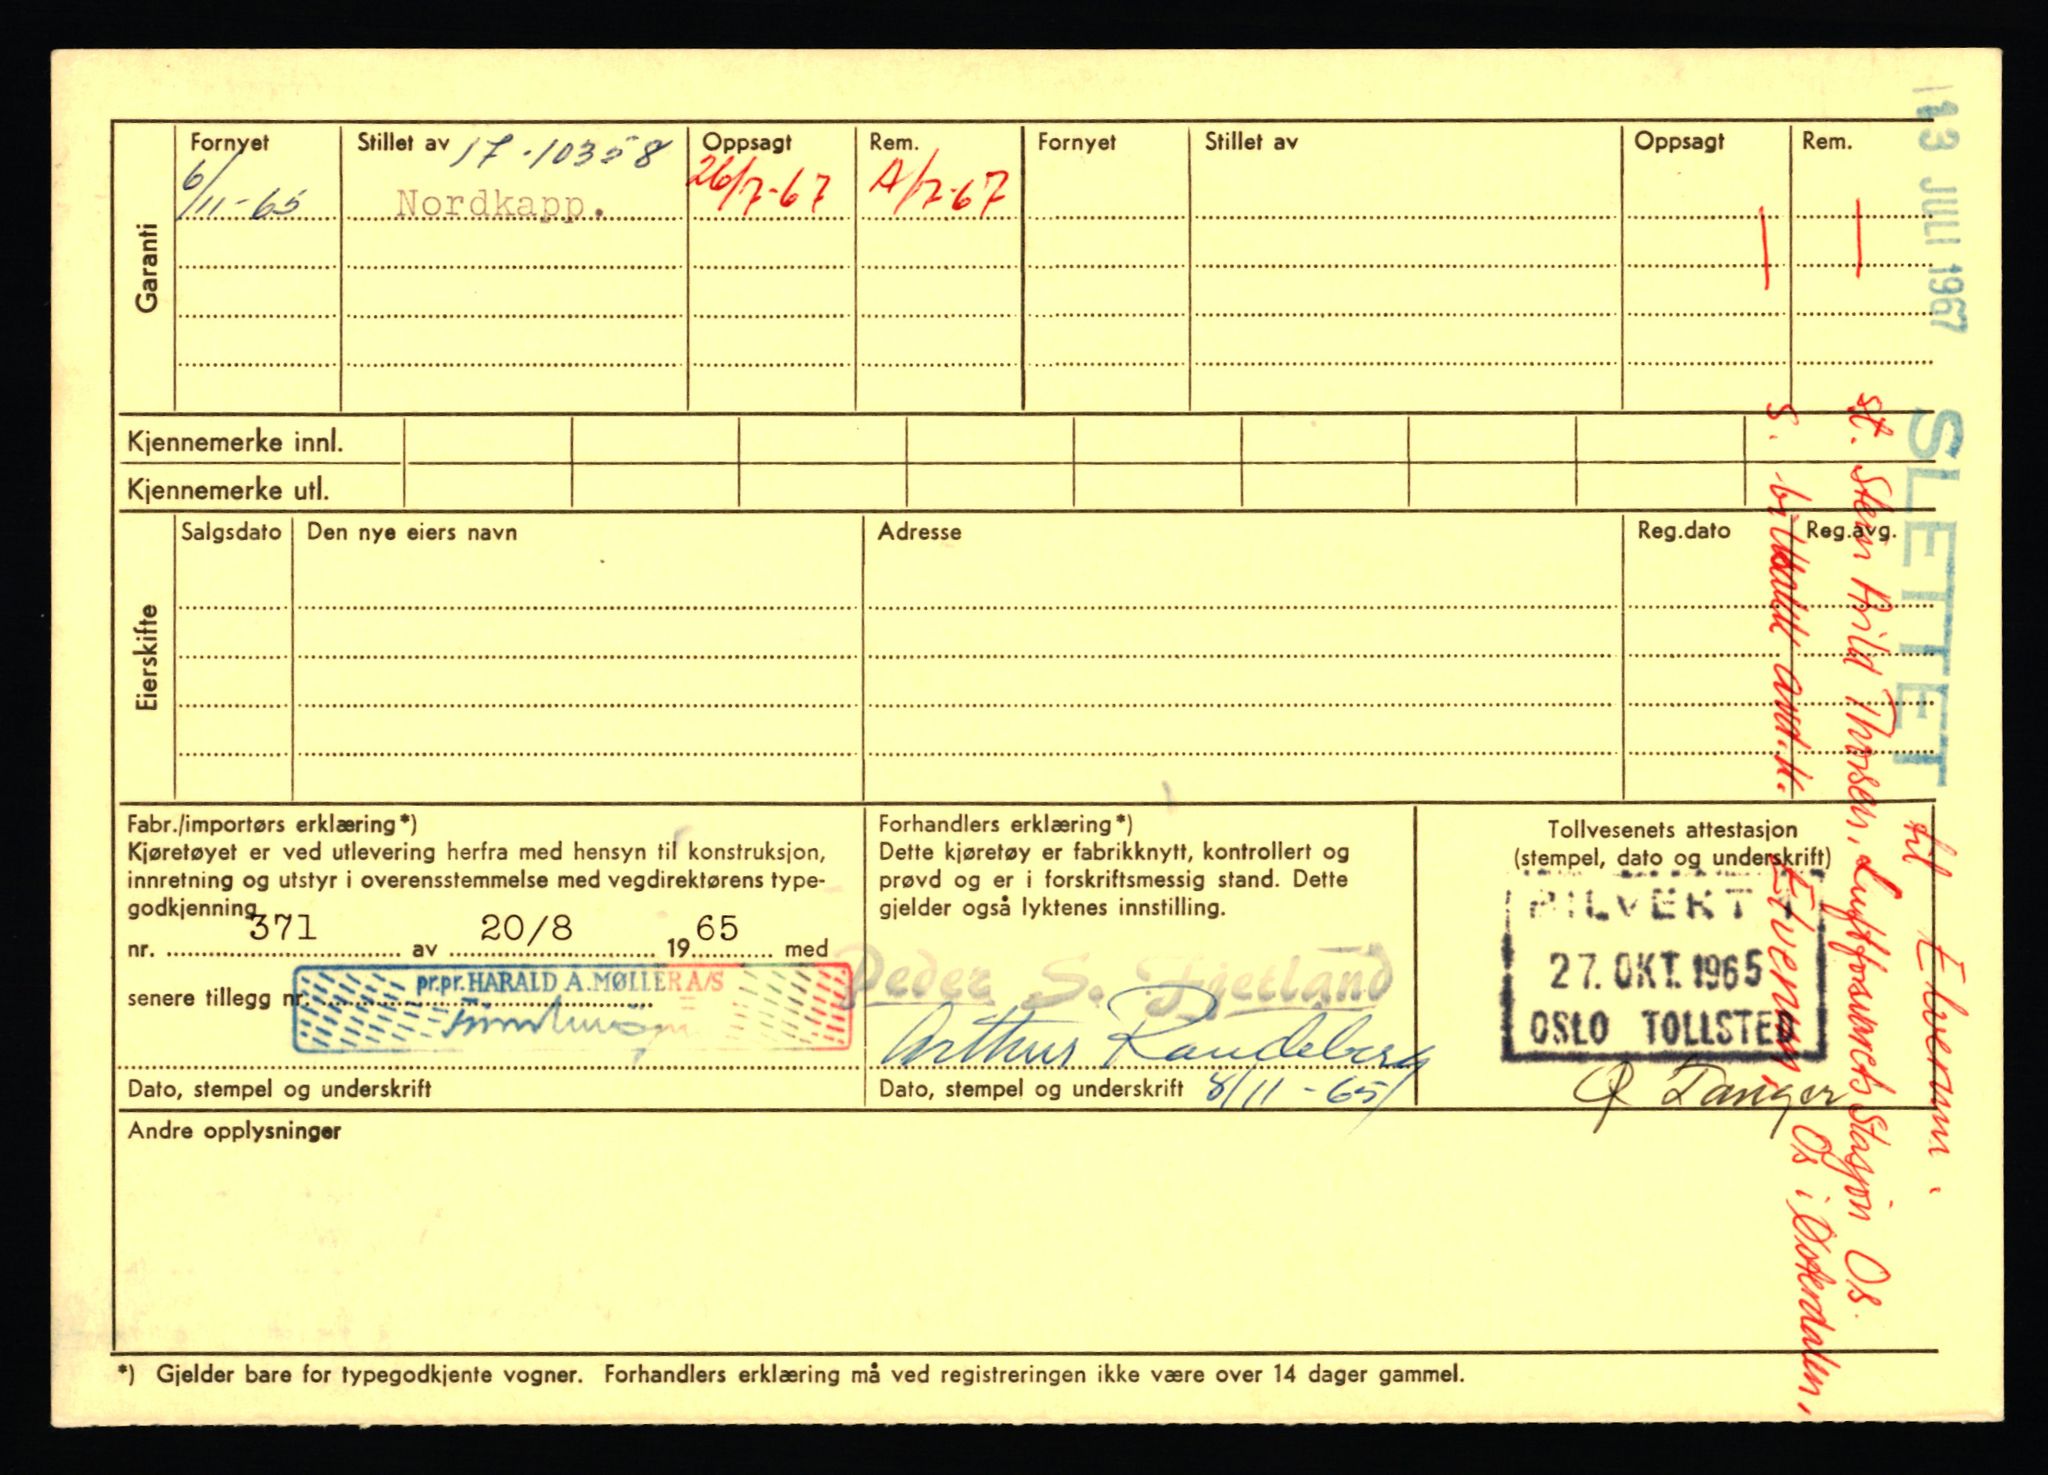 Fornyet Stillet av 17-10358 Oppsagt Rem. Fornyet Stillet av Oppsagt Rem.
6/11-65 Nordkapp. 26/7-67 A/7-67
Garanti
Kjennemerke innl.
Kjennemerke utl.
Salgsdato Den nye eiers navn Adresse Reg.dato Reg.avg.
Eierskifte
Fabr./importørs erklæring*)
Kjøretøyet er ved utlevering herfra med hensyn til konstruksjon,
innretning og utstyr i overensstemmelse med vegdirektørens type-
godkjenning
nr. 371 av 20/8 1965 med
senere tillegg nr.
pr.pr. HARALD A. MØLLER A/S
Dato, stempel og underskrift
Forhandlers erklæring*)
Dette kjøretøy er fabrikknytt, kontrollert og
prøvd og er i forskriftsmessig stand. Dette
gjelder også lyktenes innstilling.
Peder S. Fjetland
Arthur Randeberg
Dato, stempel og underskrift 8/11-65
Tollvesenets attestasjon
(stempel, dato og underskrift)
27. OKT. 1965
OSLO TOLLSTED
Tanger
Andre opplysninger
*) Gjelder bare for typegodkjente vogner. Forhandlers erklæring må ved registreringen ikke være over 14 dager gammel.
13 JULI 1967
SLETTET
til Elverum.
st. Stein Arild Thorsen, Luftforsvarets Stasjon Os.
Elverum, Os i Østerdalen,